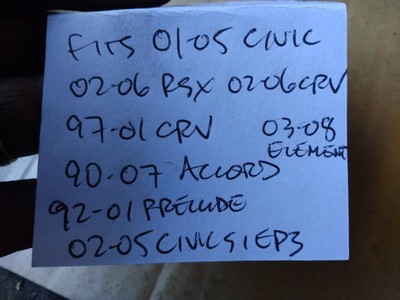 FITS 01-05 CIVIC
02-06 RSX 02-06 CRV
97-01 CRV 03-08
ELEMENT
90-07 ACCORD
92-01 PRELUDE
02-05 CIVIC SI EP3